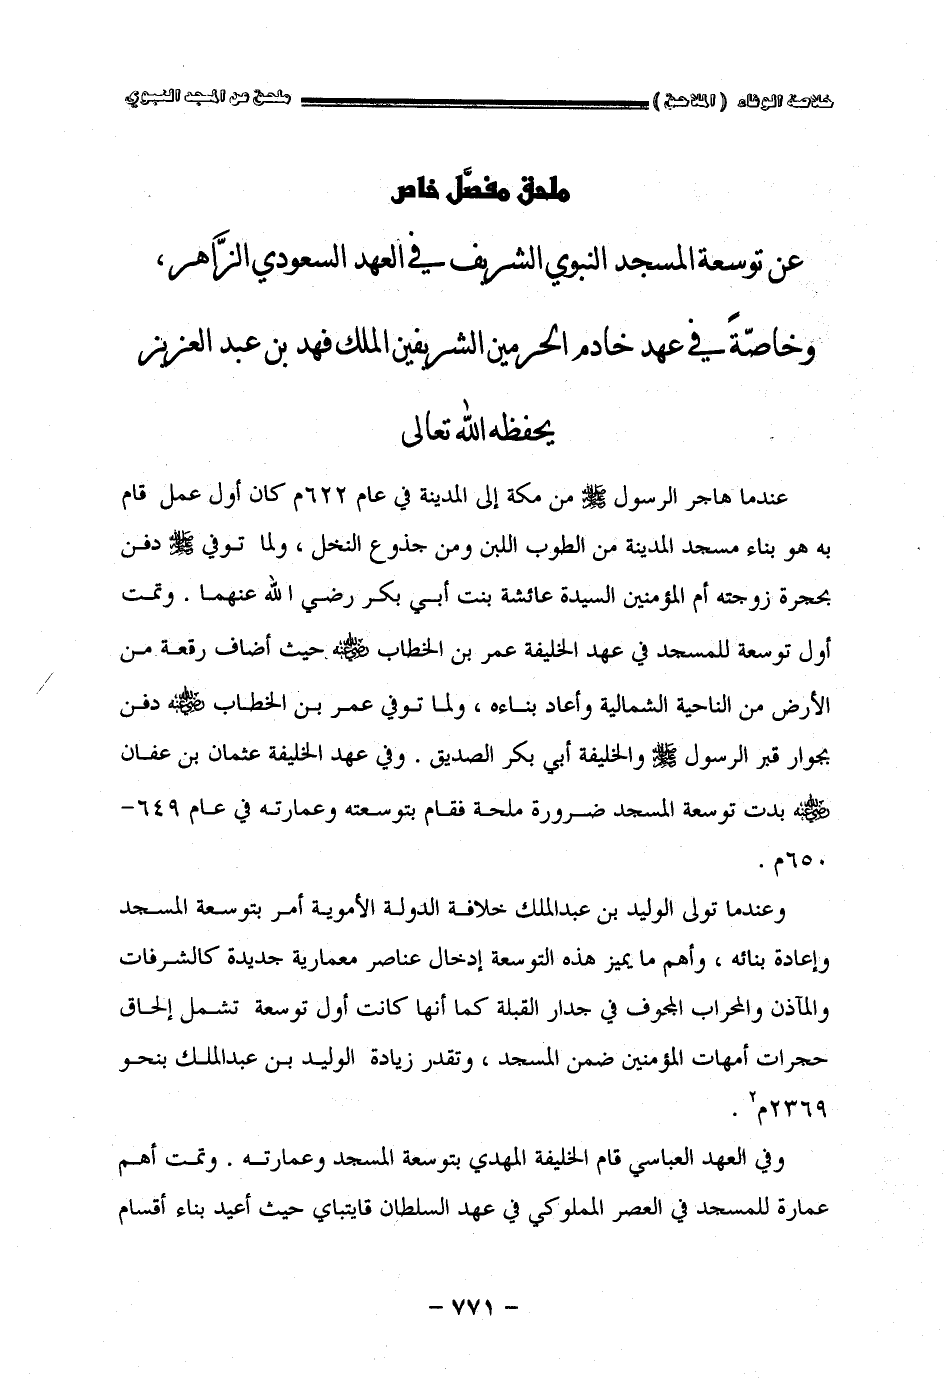 خلاصة الوفاء ( الملاحق ) ملحق عن المسجد النبوي
ملحق مفصَّل خاص
عن توسعة المسجد النبوي الشريف في العهد السعودي الزَّاهر،
وخاصّةً في عهد خادم الحرمين الشريفين الملك فهد بن عبد العزيز
يحفظه الله تعالى
عندما هاجر الرسول ﷺ من مكة إلى المدينة في عام ٦٢٢م كان أول عمل قام
به هو بناء مسجد المدينة من الطوب اللبن ومن جذوع النخل ، ولما توفي ﷺ دفن
بحجرة زوجته أم المؤمنين السيدة عائشة بنت أبي بكر رضي الله عنهما . وتمت
أول توسعة للمسجد في عهد الخليفة عمر بن الخطاب رضي الله عنه حيث أضاف رقعة من
الأرض من الناحية الشمالية وأعاد بناءه ، ولما توفي عمر بن الخطاب رضي الله عنه دفن
بجوار قبر الرسول ﷺ والخليفة أبي بكر الصديق . وفي عهد الخليفة عثمان بن عفان
رضي الله عنه بدت توسعة المسجد ضرورة ملحة فقام بتوسعته وعمارته في عام ٦٤٩-
٦٥٠م .
وعندما تولى الوليد بن عبدالملك خلافة الدولة الأموية أمر بتوسعة المسجد
وإعادة بنائه ، وأهم ما يميز هذه التوسعة إدخال عناصر معمارية جديدة كالشرفات
والمآذن والمحراب المجوف في جدار القبلة كما أنها كانت أول توسعة تشمل إلحاق
حجرات أمهات المؤمنين ضمن المسجد ، وتقدر زيادة الوليد بن عبدالملك بنحو
٢٣٦٩م٢ .
وفي العهد العباسي قام الخليفة المهدي بتوسعة المسجد وعمارته . وتمت أهم
عمارة للمسجد في العصر المملوكي في عهد السلطان قايتباي حيث أعيد بناء أقسام
- ٧٧١ -